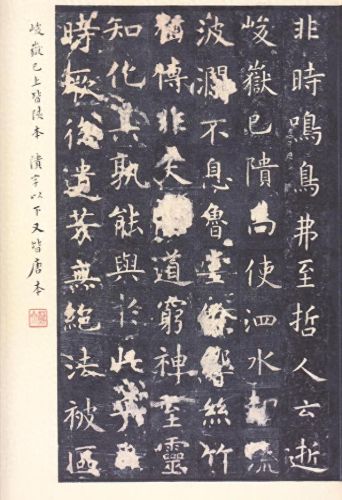 非時鳴鳥弗至哲人云逝
峻嶽已隤尚使泗水却流
波瀾不息魯堂餘絲竹
猶傳非夫道窮神至靈
知化其孰能與於此
時振後遺芳無絕法被區
峻嶽已上皆陝本 隤字以下又皆唐本